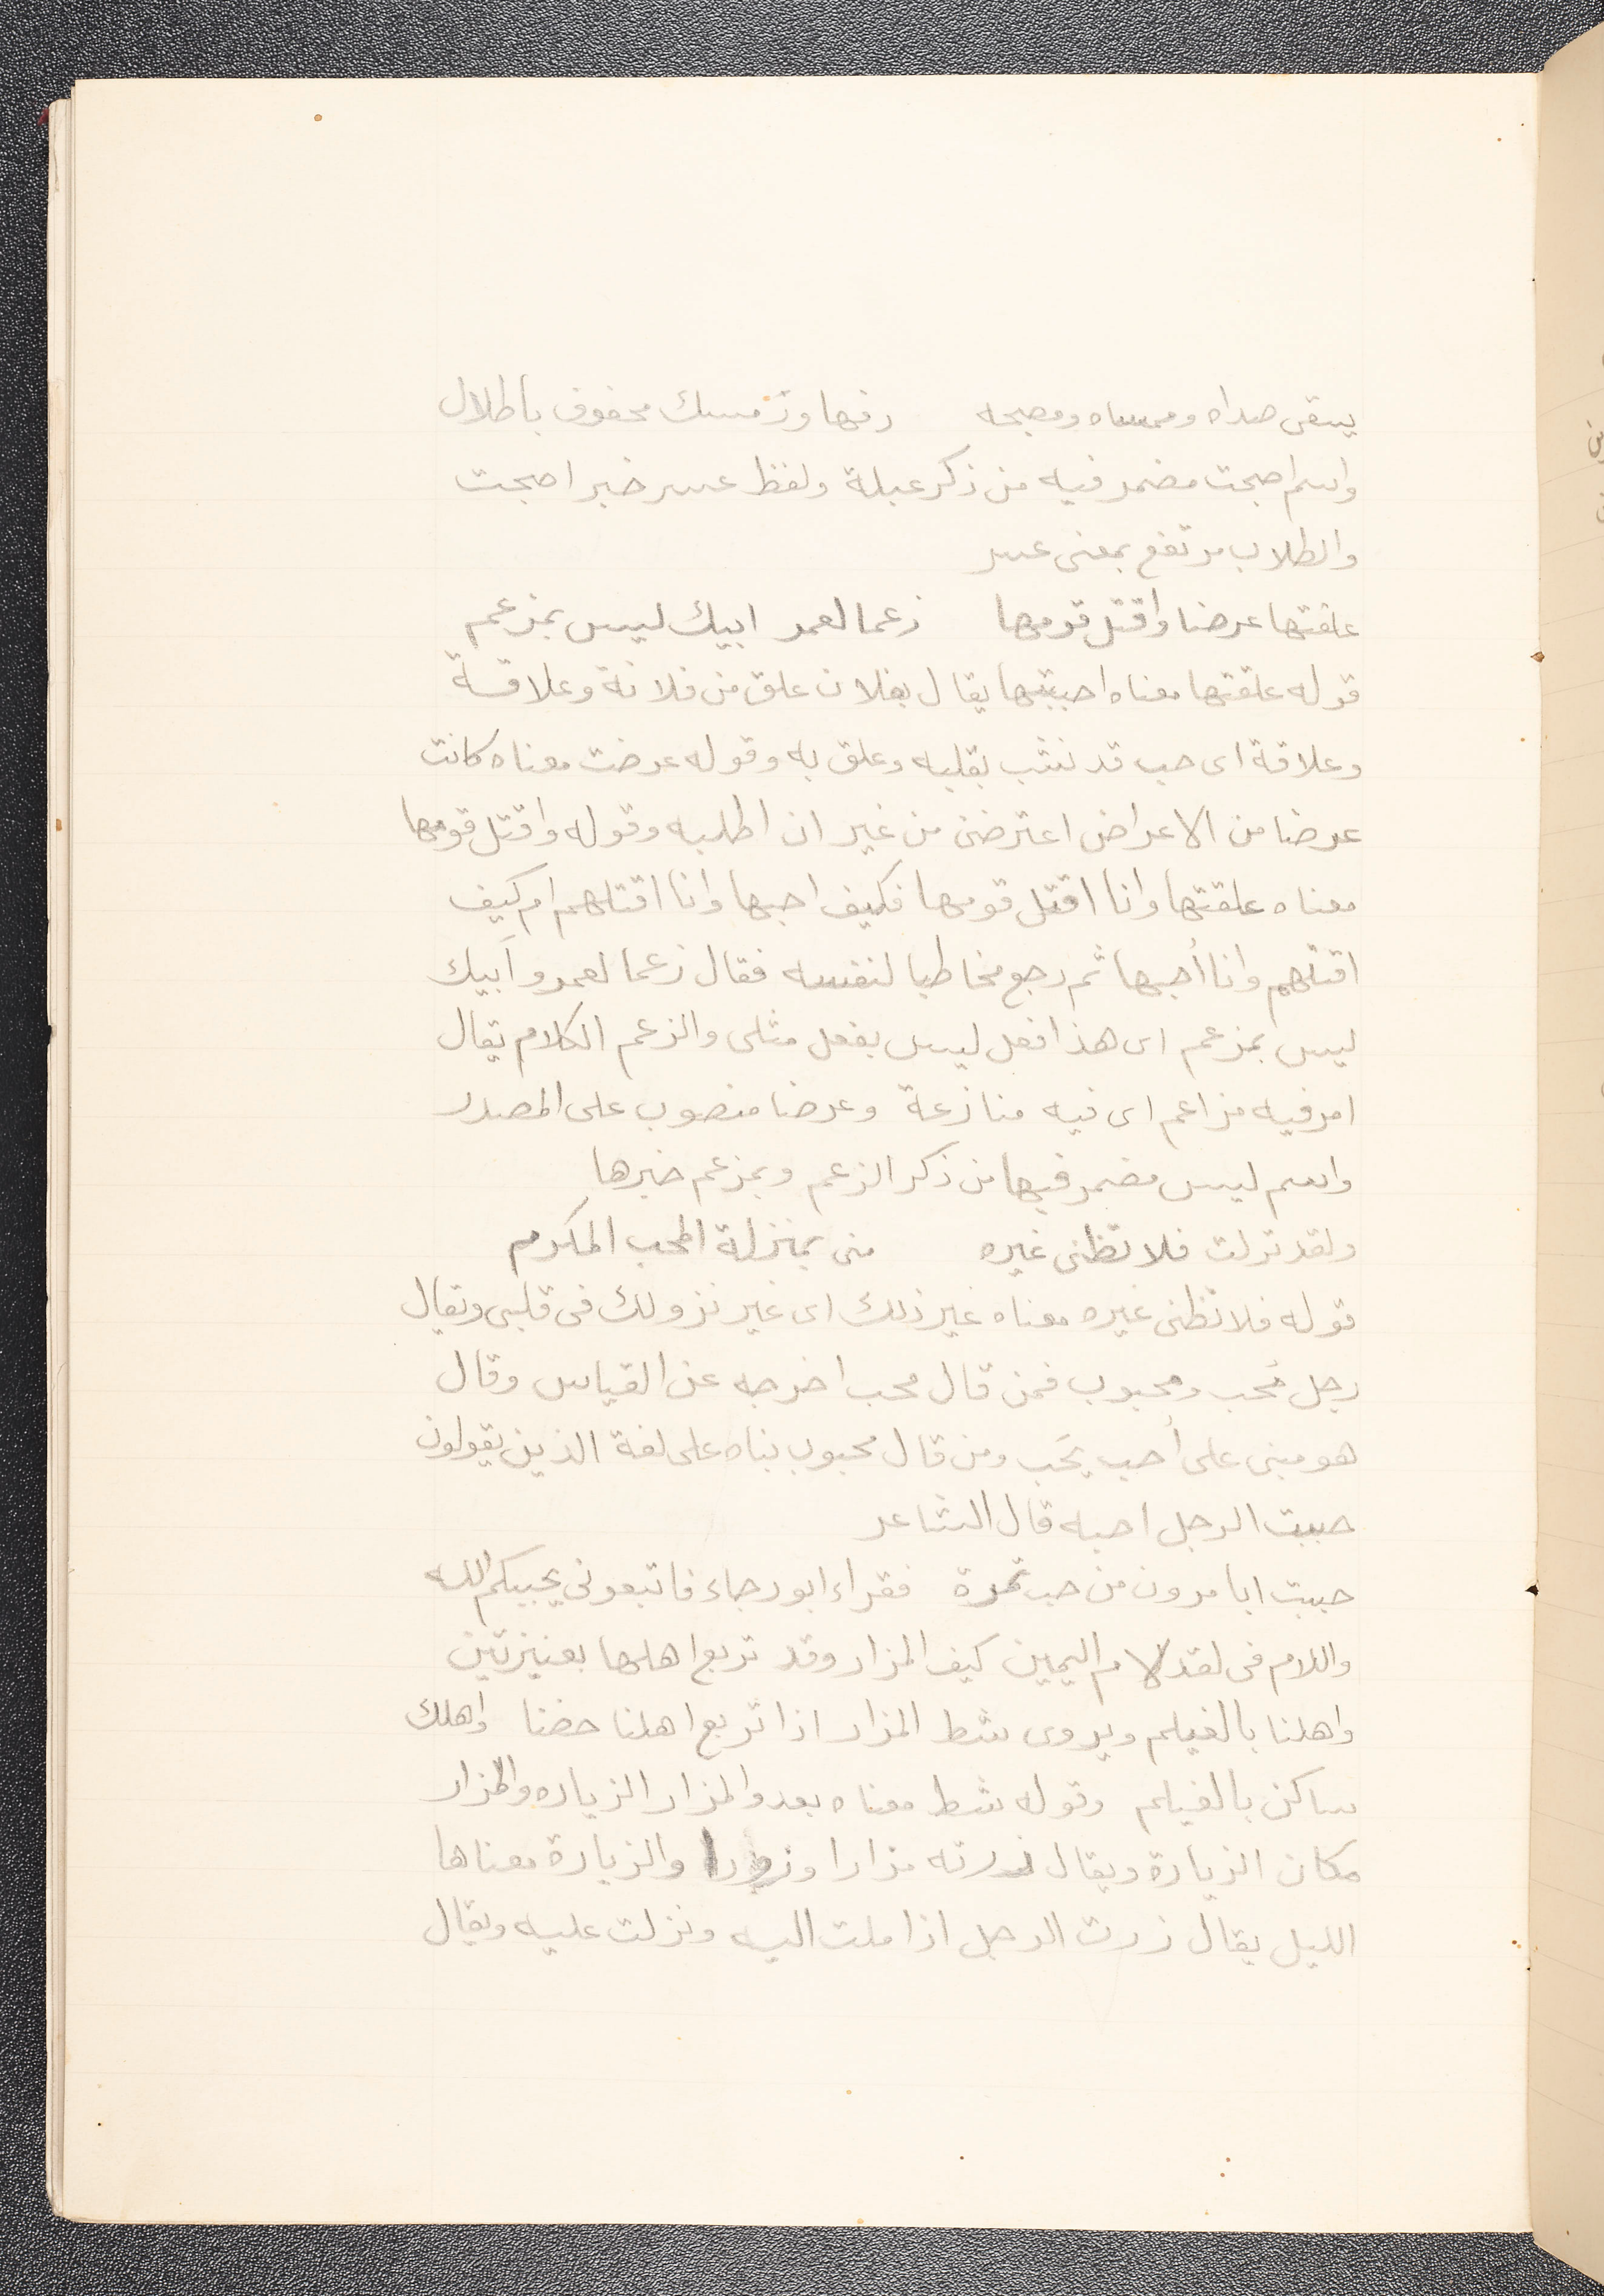 يسقى صداه وممساه ومصبحه رفها ورمسك محفوف باظلال
واسم اصبحت مضمر فيه من ذكر عبلة ولفظ عسر خبر اصبحت
والطلاب مرتفع بمعنى عسر
علقتها عرضا واقتل قومها زعما لعمر ابيك ليس بمزعم
قوله علقتها معناه احببتها يقال بفلان علق من فلانة وعلاقة
وعلاقة اى حب قد نشب بقلبه وعلق به وقوله عرضت معناه كانت
عرضا من الاعراض اعترضنى من غير ان اطلبه وقوله واقتل قومها
معناه علقتها وانا اقتل قومها فكيف احبها وانا اقتلهم ام كيف
اقتلهم وانا أحبها ثم رجع مخاطبا لنفسه فقال زعما لعمرو أبيك
ليس بمزعم اى هذا فعل ليس بفعل مثلى والزعم الكلام يقال
امر فيه مزاعم اى فيه منازعة وعرضا منصوب على المصدر
واسم ليس مضمر فيها من ذكر الزعم وبمزعم خبرها
ولقد نزلت فلا تظنى غيره منى بمنزلة المحب المكرم
قوله فلا تظنى غيره معناه غير ذلك اى غير نزولك فى قلبى ويقال
رجل مُحب ومحبوب فمن قال محب اخرجه عن القياس وقال
هو مبنى على أحب يحب ومن قال محبوب بناه على لغة الذين يقولون
حببت الرجل احبه قال الشاعر
حببت ابا مرون من حب تمرة فقراء ابو رجاء فاتبعونى يحببكم الله
واللام فى لقد لام اليمين كيف المزار وقد تربع اهلها بعنيزتين
واهلنا بالغيلم ويروى شط المزار اذا تربع اهلنا حضنا واهلك
ساكن بالغيلم وقوله شط معناه بعد والمزار الزياره والمزار
مكان الزيارة ويقال زرته مزارا والزيارة معناها
الليل يقال زرت الرجل اذا ملت اليه ونزلت عليه ويقال